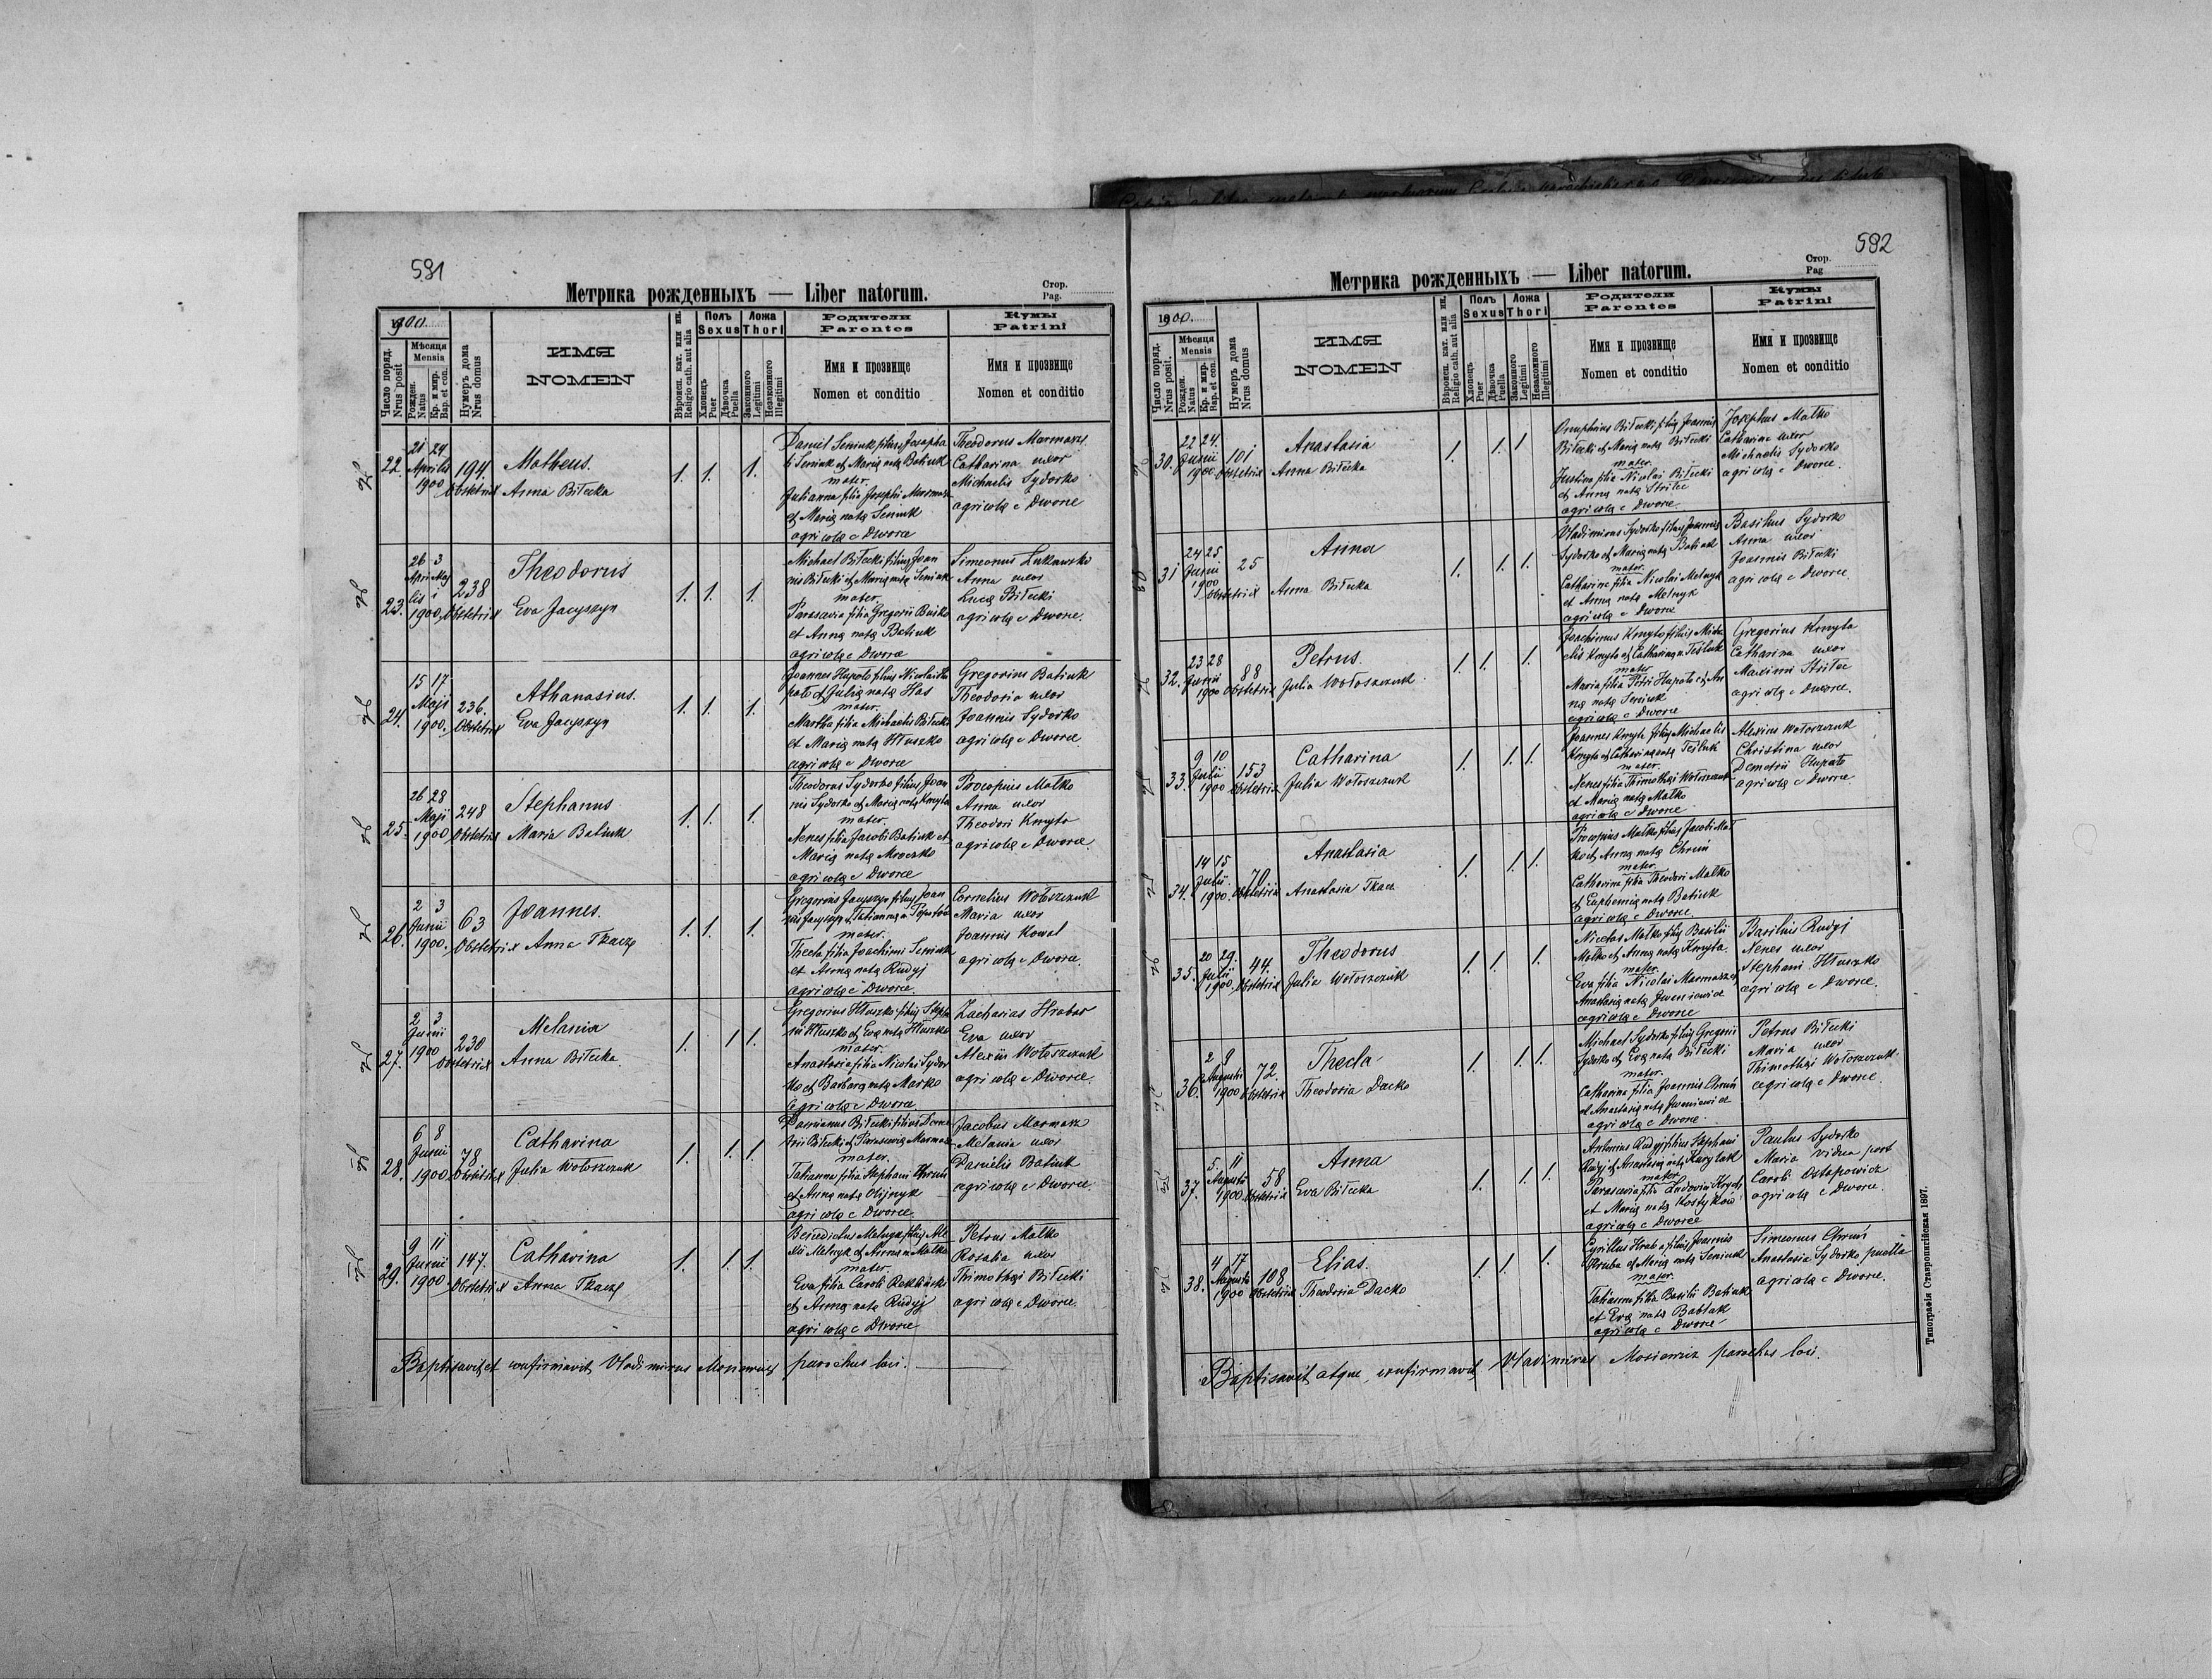 591
Метрика рожденныхъ — Liber natorum.
Стор.
Pag.
900.
Число поряд.
Nrus posit
Мѣсяця
Mensis
Рожден.
Natus
Кр. и мир.
Bap. et con.
Нумеръ дома
Nrus domus
ИМЯ
NOMEN
Вѣроисп. кат. или ин.
Religio cath. aut alia
Полъ
Sexus
Хлопецъ
Puer
Дѣвочка
Puella
Ложа
Thori
Законного
Legitimi
Незаконного
Illegitimi
Родители
Parentes
Имя и прозвище
Nomen et conditio
Кумы
Patrini
Имя и прозвище
Nomen et conditio
22. 21 24 Aprilis 1900 194 Matheus. 1. 1. 1.
Obstetrix Anna Biłecka
Daniel Seniuk filius Josepha
ti Seniuk et Marię natę Batiuk
mater.
Julianna filia Josephi Marmasz
et Marię natę Seniuk
agricolę e Dworce
Theodorus Marmasz
Catharina uxor
Michaelis Sydorko
agricolę e Dworce
23. 26 3 Aprilis Maji 1900 238 Theodorus 1. 1. 1.
Obstetrix Eva Jacyszyn
Michael Biłecki filius Joan
nis Biłecki et Marię natę Seniuk
mater.
Parascevia filia Gregorii Busko
et Annę natę Batiuk
agricolę e Dworce
Simeonus Lukawski
Anna uxor
Lucę Biłecki
agricolę e Dworce.
24. 15 17 Maji 1900. 236. Athanasius. 1. 1. 1.
Obstetrix Eva Jacyszyn
Joannes Hupało filius Nicolai Hu
pało et Julię natę Has
mater.
Martha filia Michaelis Biłecki
et Marię natę Hłuszko
agricolę e Dworce
Gregorius Batiuk
Theodoria uxor
Joannis Sydorko
agricolę e Dworce
25. 26 28 Maji 1900 248 Stephanus 1. 1. 1.
Obstetrix Maria Batiuk
Theodorus Sydorko filius Joan
nis Sydorko et Marię natę Kmyta
mater.
Nenes filia Jacobi Batiuk et
Marię natę Mroczko
agricolę e Dworce
Procopius Małko
Anna uxor
Theodori Kmyto
agricolę e Dworce
26. 2 3 Junii 1900. 63 Joannes. 1. 1. 1.
Obstetrix Anna Tkacz
Gregorius Jacyszyn filius Joan
mater.
Thecla filia Joachimi Seniuk
et Annę natę Rudyj
agricolę e Dworce.
Cornelius Wołoszczuk
Maria uxor
Joannis Kowal
agricolę e Dworce.
27. 2 3 Junii 1900 230 Melania 1. 1. 1.
Obstetrix Anna Biłecka
Gregorius Hłuszko filius Stepha
ni Hłuszko et Evę natę Hłuszko
mater.
Anastasia filia Nicolai Sydor
ko et Barbarę natę Marko
agricolę e Dworce
Zacharias Hrabar
Eva uxor
Alexii Wołoszczuk
agricolę e Dworce.
28. 6 8 Junii 1900 78 Catharina 1. 1. 1.
Obstetrix Julia Wołoszczuk
Damianus Biłecki filius Deme
trii Biłecki et Parascevię Marmasz
mater.
Tatianna filia Stephani Chruń
et Annę natę Olijnyk
agricolę e Dworce.
Jacobus Marmasz
Melania uxor
Danielis Batiuk
agricolę e Dworce.
29. 9 11 Junii 1900. 147. Catharina 1. 1. 1.
Obstetrix Anna Tkacz
Benedictus Melnyk filius Ale
xii Melnyk et Annę n. Małko
mater.
et Annę natę Rudyj
agricolę e Dworce
Petrus Małko
Rosalia uxor
Thimothęi Biłecki
agricolę e Dworce.
Baptisavit et confirmavit Vladimirus Mosiewicz parochus loci.
592
Метрика рожденныхъ — Liber natorum.
Стор.
Pag
1900.
Число поряд.
Nrus posit.
Мѣсяця
Mensis
Рожден.
Natus
Кр. и мир.
Bap. et con.
Нумеръ дома
Nrus domus
ИМЯ
NOMEN
Вѣроисп. кат. или ин.
Religio cath. aut alia
Полъ
Sexus
Хлопецъ
Puer
Дѣвочка
Puella
Ложа
Thori
Законного
Legitimi
Незаконного
Illegitimi
Родители
Parentes
Имя и прозвище
Nomen et conditio
Кумы
Patrini
Имя и прозвище
Nomen et conditio
30. 22 24. Junii 1900 101 Anastasia 1. 1. 1
Obstetrix Anna Biłecka
Onuphrius Biłecki filius Joannis
Biłecki et Marię natę Biłecki
mater.
Justina filia Nicolai Biłecki
et Annę natę Strilec
agricolę e Dworce
Josephus Małko
Catharina uxor
Michaelis Sydorko
agricolę e Dworce.
31 24 25 Junii 1900 25 Anna 1. 1. 1.
Obstetrix Anna Biłecka
Vladimirus Sydorko filius Joannis
Sydorko et Marię natę Batiuk
mater.
Catharina filia Nicolai Melnyk
et Annę natę Melnyk
agricolę e Dworce
Basilius Sydorko
Anna uxor
Joannis Biłecki
agricolę e Dworce.
32. 23 28 Junii 1900 88 Petrus. 1. 1. 1.
Obstetrix Julia Wołoszczuk
Joachimus Kmyto filius Micha
elis Kmyto et Catharinę n. Tesluk
mater
Maria filia Petri Hupało et An
nę natę Seniuk
agricolę e Dworce
Gregorius Kmyta
Catharina uxor
Maximi Strilec
agricolę e Dworce.
33. 9 10 Julii 1900 153 Catharina 1. 1. 1.
Obstetrix Julia Wołoszczuk
Joannes Kmyta filius Michaelis
Kmyta et Catharinę natę Tesluk
mater.
Nenes filia Thimothęi Wołoszczuk
et Marię natę Małko
agricolę e Dworce
Alexius Wołoszczuk
Christina uxor
Demetrii Hupało
agricolę e Dworce
34. 14 15 Julii 1900. 70 Anastasia 1. 1. 1.
Obstetrix Anastasia Tkacz
Procopius Małko filius Jacobi Mał
ko et Annę natę Chruń
mater.
Catharina filia Theodori Małko
et Euphemię natę Batiuk
agricolę e Dworce.
35. 20 29. Julii 1900 44. Theodorus 1. 1. 1.
Obstetrix Julia Wołoszczuk
Nicetas Małko filius Basilii
Małko et Annę natę Kmyta.
mater.
Eva filia Nicolai Marmasz et
Anastasię natę Iweniewicz
agricolę e Dworce
Basilius Rudyj
Nenes uxor
Stephani Hłuszko
agricolę e Dworce.
36. 2 9 Augusti 1900 72. Thecla 1. 1. 1.
Obstetrix Theodosia Dacko
Michael Sydorko filius Gregorii
Sydorko et Evę natę Biłecki
mater.
Catharina filia Joannis Chruń
et Anastasię natę Iweniewicz
e Dworce.
Petrus Biłecki
Maria uxor
Thimothęi Wołoszczuk.
agricolę e Dworce.
37. 5. 11 Augusti 1900 58 Anna 1. 1. 1.
Obstetrix Eva Biłecka
Antonius Rudyj filius Stephani
mater.
agricolę e Dworce
Paulus Sydorko
Maria vidua post
Caroli Ostapowicz
agricolę e Dworce.
38. 4 17 Augusti 1900 108 Elias. 1. 1. 1.
Obstetrix Theodosia Dacko
Cyrillus Hraba filius Joannis
Hraba et Marię natę Seniuk
mater.
Tatianna filia Basilii Batiuk
et Evę natę Babiak
agricolę e Dworce
Simeonus Chruń
Anastasia Sydorko puella
agricolę e Dworce.
Baptisavit atque confirmavit Vladimirus Mosiewicz parochus loci.
Типографія Ставропигійская 1897.